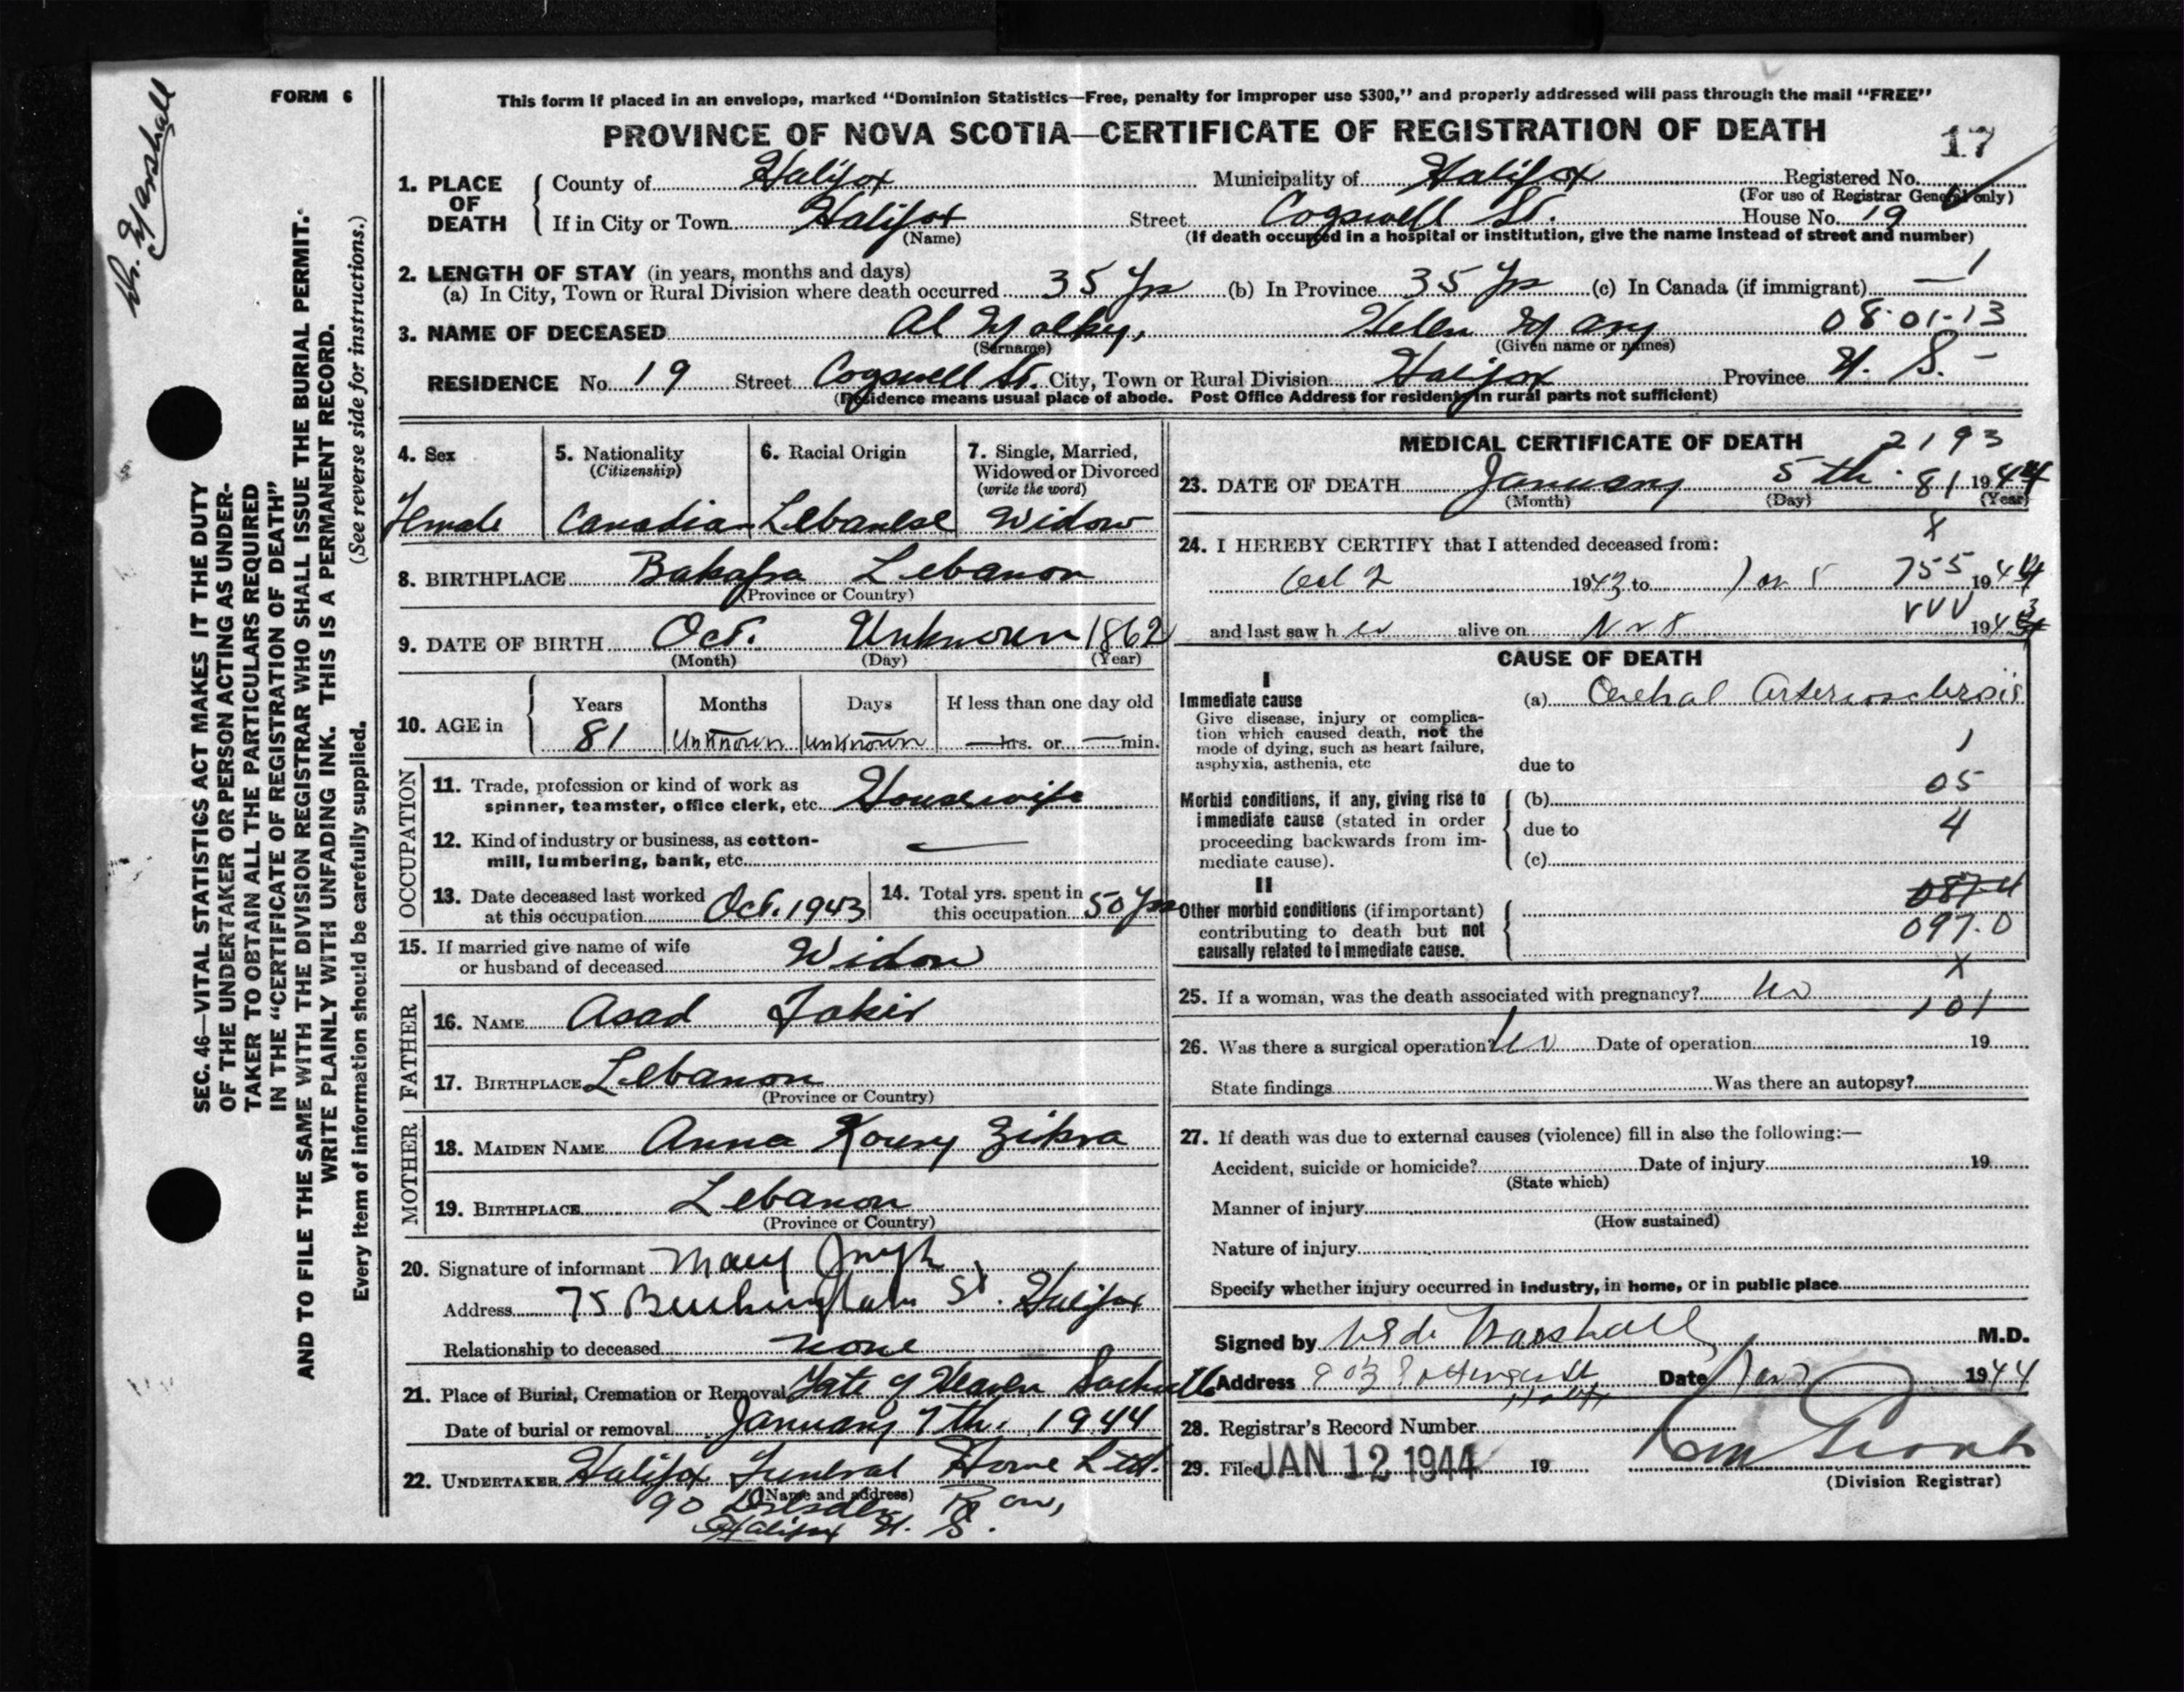 FORM 6
This form if placed in an envelope, marked "Dominion Statistics—Free, penalty for improper use $300," and properly addressed will pass through the mail "FREE"
PROVINCE OF NOVA SCOTIA—CERTIFICATE OF REGISTRATION OF DEATH
17
Dr. Marshall
SEC. 46—VITAL STATISTICS ACT MAKES IT THE DUTY
OF THE UNDERTAKER OR PERSON ACTING AS UNDER-
TAKER TO OBTAIN ALL THE PARTICULARS REQUIRED
IN THE "CERTIFICATE OF REGISTRATION OF DEATH"
AND TO FILE THE SAME WITH THE DIVISION REGISTRAR WHO SHALL ISSUE THE BURIAL PERMIT.
WRITE PLAINLY WITH UNFADING INK. THIS IS A PERMANENT RECORD.
Every item of information should be carefully supplied. (See reverse side for instructions.)
1. PLACE OF DEATH
County of Halifax Municipality of Halifax Registered No.
(For use of Registrar General only)
If in City or Town Halifax Street Cogswell St. House No. 19
(Name) (If death occurred in a hospital or institution, give the name instead of street and number)
2. LENGTH OF STAY (in years, months and days)
(a) In City, Town or Rural Division where death occurred 35 Yrs (b) In Province 35 Yrs (c) In Canada (if immigrant) — 1
3. NAME OF DECEASED Al Malky, Helen Mary 08-01-13
(Surname) (Given name or names)
RESIDENCE No. 19 Street Cogswell St. City, Town or Rural Division Halifax Province N. S. -
(Residence means usual place of abode. Post Office Address for residents in rural parts not sufficient)
4. Sex
Female
5. Nationality
(Citizenship)
Canadian
6. Racial Origin
Lebanese
7. Single, Married,
Widowed or Divorced
(write the word)
Widow
8. BIRTHPLACE Lebanon
(Province or Country)
9. DATE OF BIRTH Oct. Unknown 1862
(Month) (Day) (Year)
10. AGE in
Years Months Days If less than one day old
81 Unknown Unknown — hrs. or — min.
OCCUPATION
11. Trade, profession or kind of work as
spinner, teamster, office clerk, etc. Housewife
12. Kind of industry or business, as cotton-
mill, lumbering, bank, etc. —
13. Date deceased last worked
at this occupation Oct. 1943
14. Total yrs. spent in
this occupation 50 Yrs
15. If married give name of wife
or husband of deceased Widow
FATHER
16. NAME Asad Fakir
17. BIRTHPLACE Lebanon
(Province or Country)
MOTHER
18. MAIDEN NAME Anna Koury Zikra
19. BIRTHPLACE Lebanon
(Province or Country)
20. Signature of informant Mary
Address 75 Buckingham St. Halifax
Relationship to deceased none
21. Place of Burial, Cremation or Removal Gate of Heaven Sackville
Date of burial or removal January 7th. 1944
22. UNDERTAKER Halifax Funeral Home Ltd.
(Name and address)
90 Dresden Row,
Halifax N. S.
MEDICAL CERTIFICATE OF DEATH 2193
23. DATE OF DEATH January 5th 81 1944
(Month) (Day) (Year)
8
24. I HEREBY CERTIFY that I attended deceased from:
Oct 2 1943 to Jan 5 755 1944
and last saw her alive on Nov 8 VVV 1943
CAUSE OF DEATH
I
Immediate cause (a) Cerebral Arteriosclerosis
Give disease, injury or complica-
tion which caused death, not the
mode of dying, such as heart failure,
asphyxia, asthenia, etc
1
due to
05
Morbid conditions, if any, giving rise to (b)
immediate cause (stated in order due to 4
proceeding backwards from im-
mediate cause). (c)
II
087.4
Other morbid conditions (if important)
contributing to death but not 097.0
causally related to immediate cause.
X
25. If a woman, was the death associated with pregnancy? No
101
26. Was there a surgical operation? No Date of operation 19
State findings Was there an autopsy?
27. If death was due to external causes (violence) fill in also the following:—
Accident, suicide or homicide? Date of injury 19
(State which)
Manner of injury
(How sustained)
Nature of injury
Specify whether injury occurred in industry, in home, or in public place
Signed by Marshall M.D.
Address Date Jan 1944
28. Registrar's Record Number
29. Filed JAN 12 1944 19
(Division Registrar)